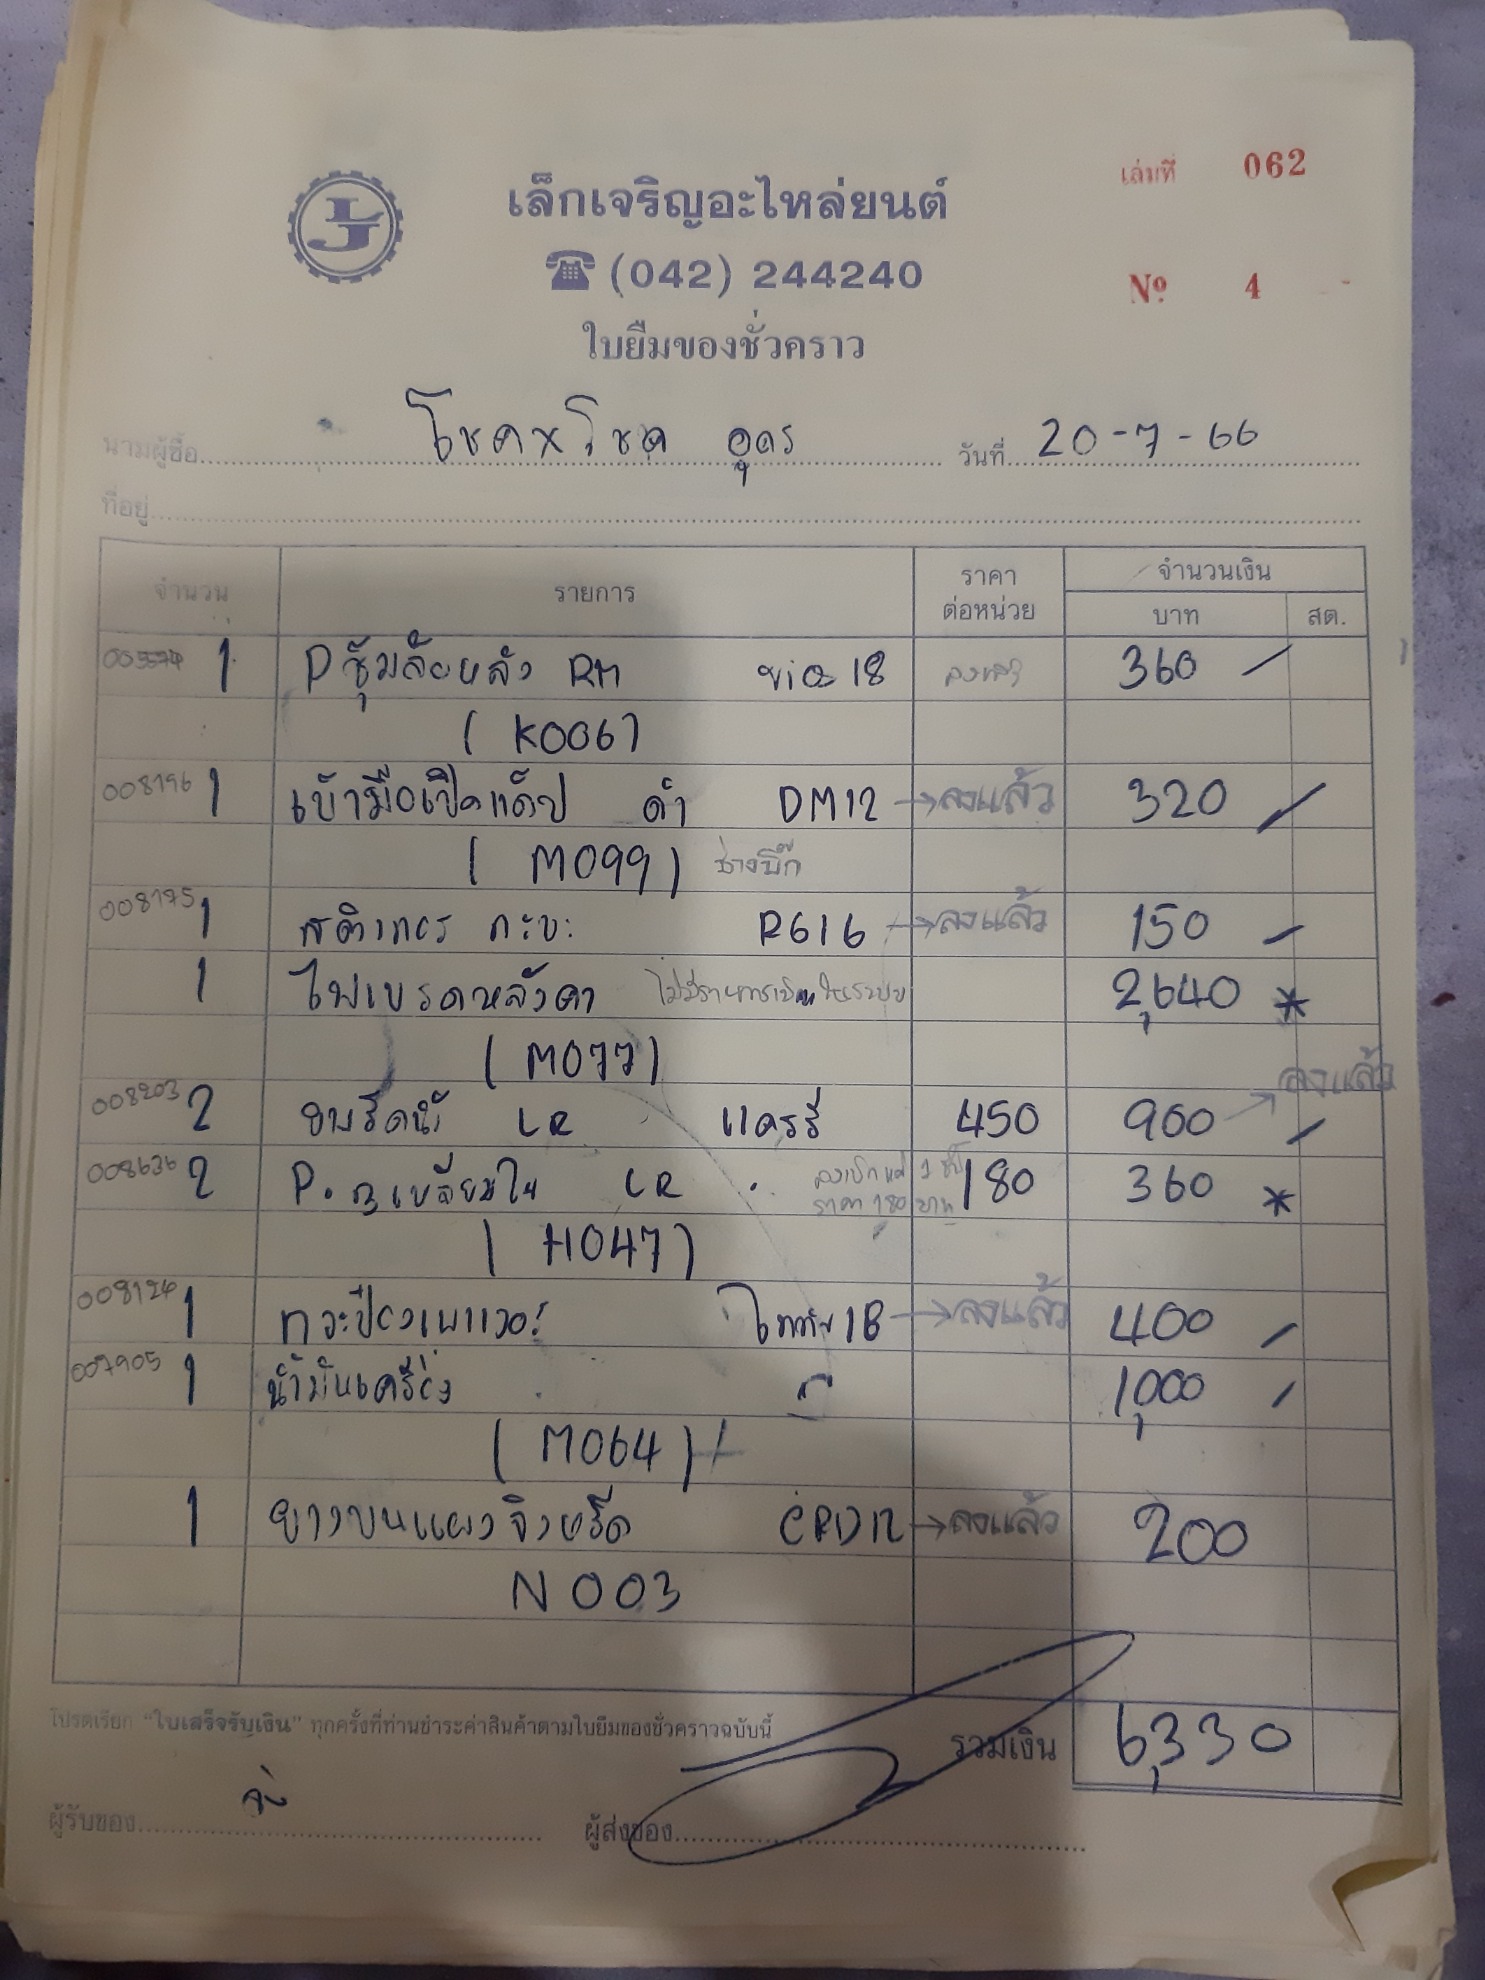 เล่มที่ 062
เล็กเจริญอะไหล่ยนต์
LJ
☎ (042) 244240
Nº 4
ใบยืมของชั่วคราว
นามผู้ซื้อ โชคxโชค อุดร วันที่ 20-7-66
ที่อยู่
จำนวน รายการ ราคาต่อหน่วย จำนวนเงิน
บาท สต.
1 Pซุ้มล้อหลัง RM 18 360
(K006)
008196 1 เบ้ามือเปิดแค็ป ดำ DM12 → ลงแล้ว 320
(M099) ช่างบิ๊ก
008195 1 สติกเกอร์ กะบะ R616 → ลงแล้ว 150
1 ไฟเบรคหลังคา 2,640 *
(M077)
ลงแล้ว
008203 2 LR แครรี่ 450 900 →
2 P. LR 180 360 *
(H047)
008124 1 กระป๋องเพาเวอร์ ไททัน 1B → ลงแล้ว 400
007905 1 น้ำมันเครื่อง 1,000
(M064)
1 ยางบนแผงจิ้งหรีด → ลงแล้ว 200
N003
โปรดเรียก "ใบเสร็จรับเงิน" ทุกครั้งที่ท่านชำระค่าสินค้าตามใบยืมของชั่วคราวฉบับนี้
รวมเงิน 6,330
ผู้รับของ ผู้ส่งของ